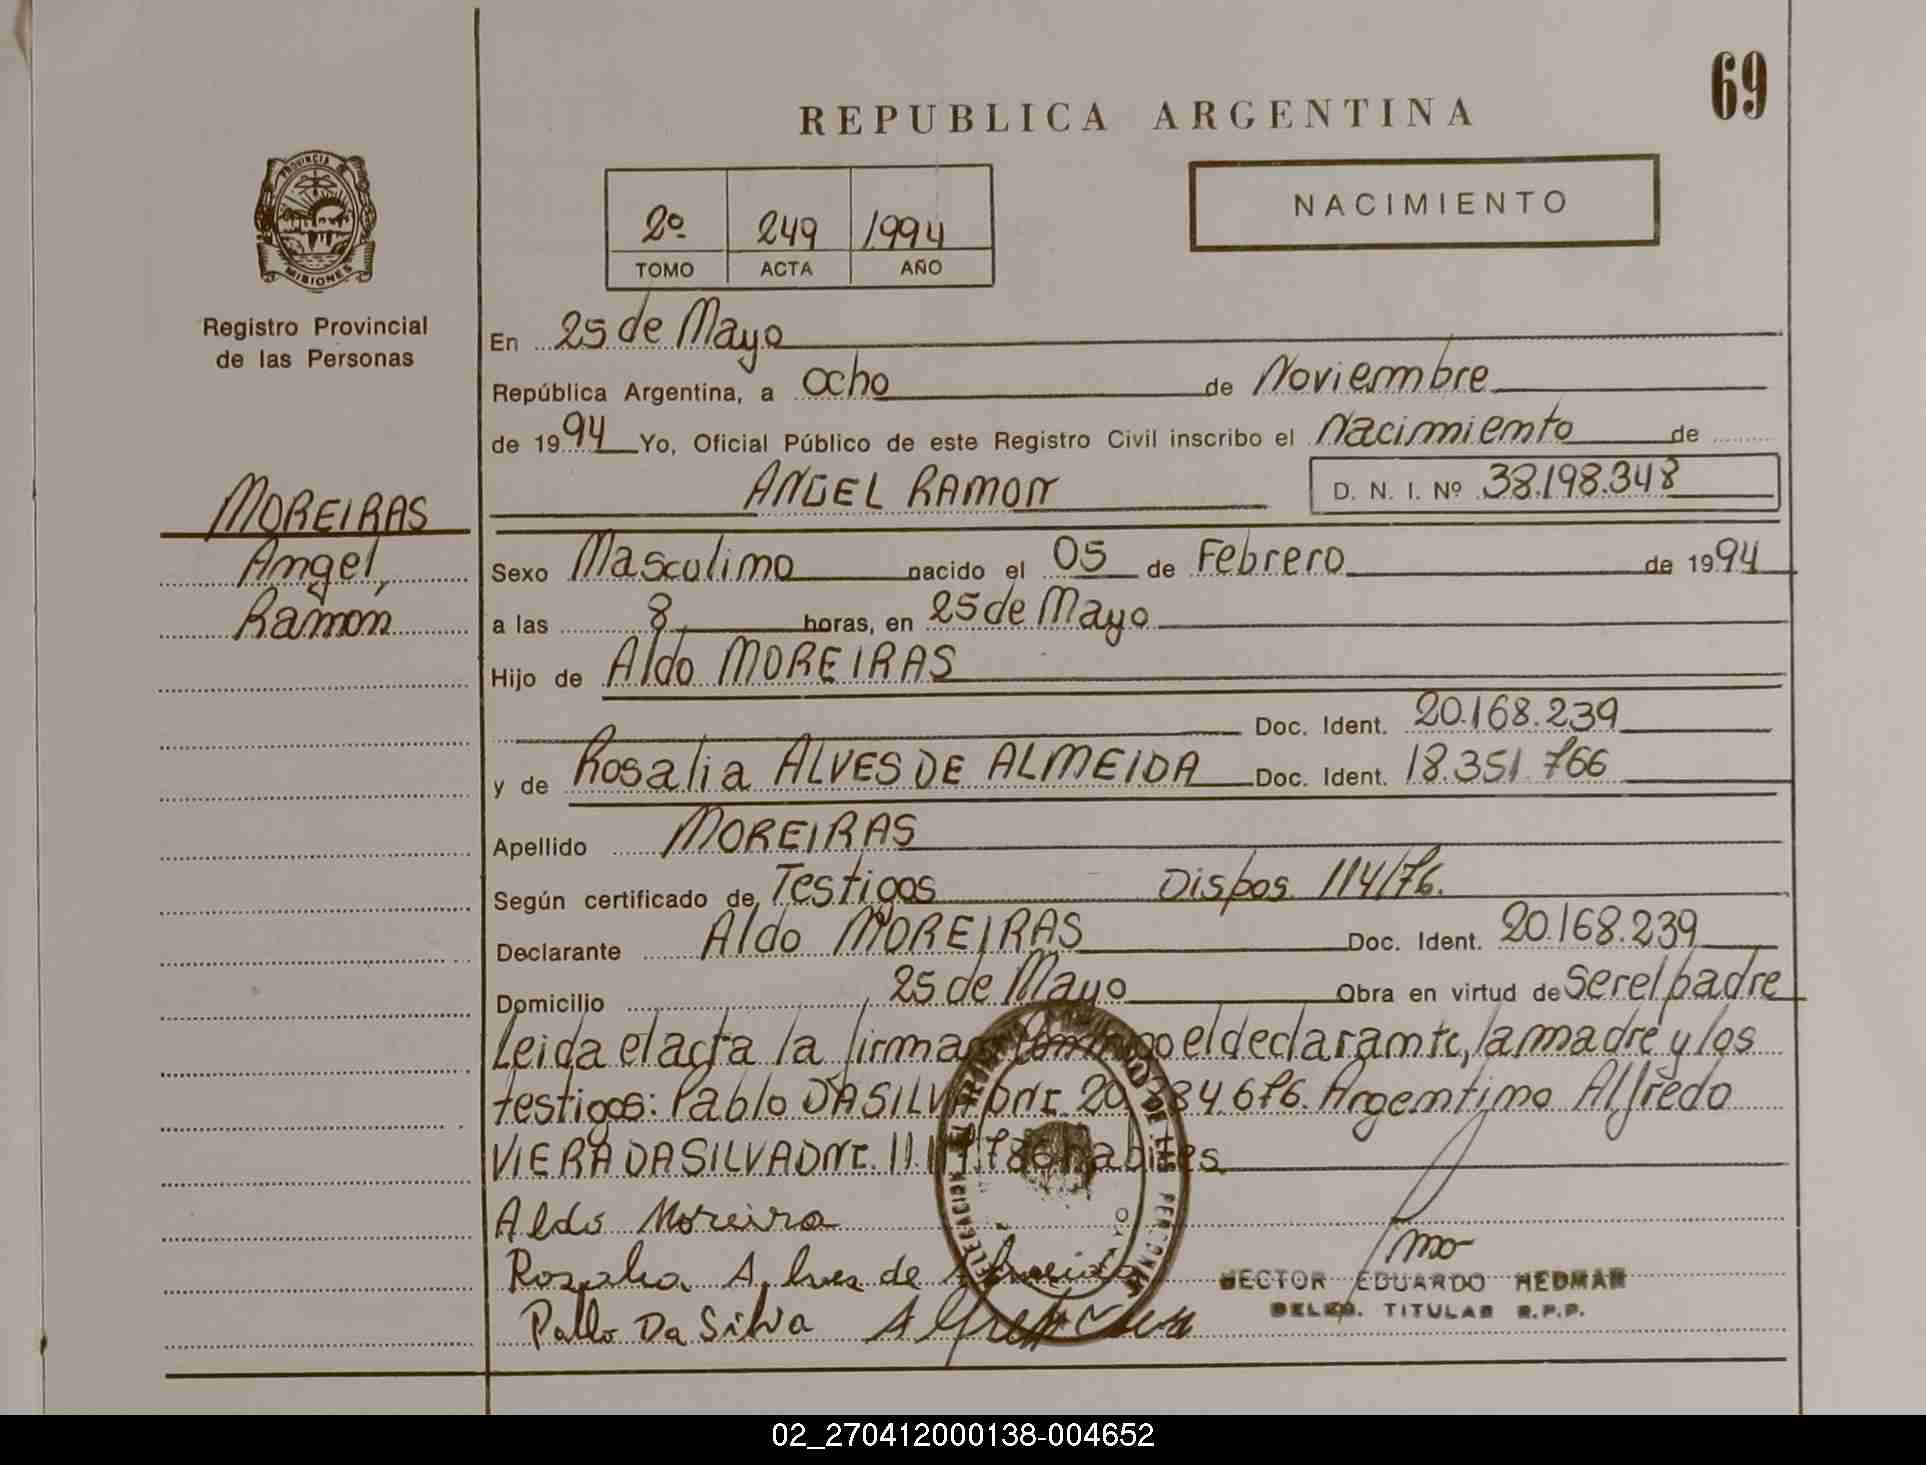 69
REPUBLICA ARGENTINA
PROVINCIA DE
MISIONES
Registro Provincial
de las Personas
2º 249 1994
TOMO ACTA AÑO
NACIMIENTO
En 25 de Mayo
República Argentina, a ocho de Noviembre
de 1994 Yo, Oficial Público de este Registro Civil inscribo el Nacimiento de
ANGEL RAMON D. N. I. Nº 38.198.348
MOREIRAS
Angel,
Ramon
Sexo Masculino nacido el 05 de Febrero de 1994
a las 8 horas, en 25 de Mayo
Hijo de Aldo MOREIRAS
Doc. Ident. 20.168.239
y de Rosalia ALVES DE ALMEIDA Doc. Ident. 18.351.766
Apellido MOREIRAS
Según certificado de Testigos Dispos. 114/76.
Declarante Aldo MOREIRAS Doc. Ident. 20.168.239
Domicilio 25 de Mayo Obra en virtud de ser el padre
Leida el acta la firman conmigo el declarante, la madre y los
testigos: Pablo DA SILVA DNI. 20. 34.676. Argentino Alfredo
VIERA DA SILVA DNI. 11. habiles
Aldo Moreira
Rosalia Alves de Almeida
Pablo Da Silva
HECTOR EDUARDO HEDMAN
DELEG. TITULAR R.P.P.
02_270412000138-004652